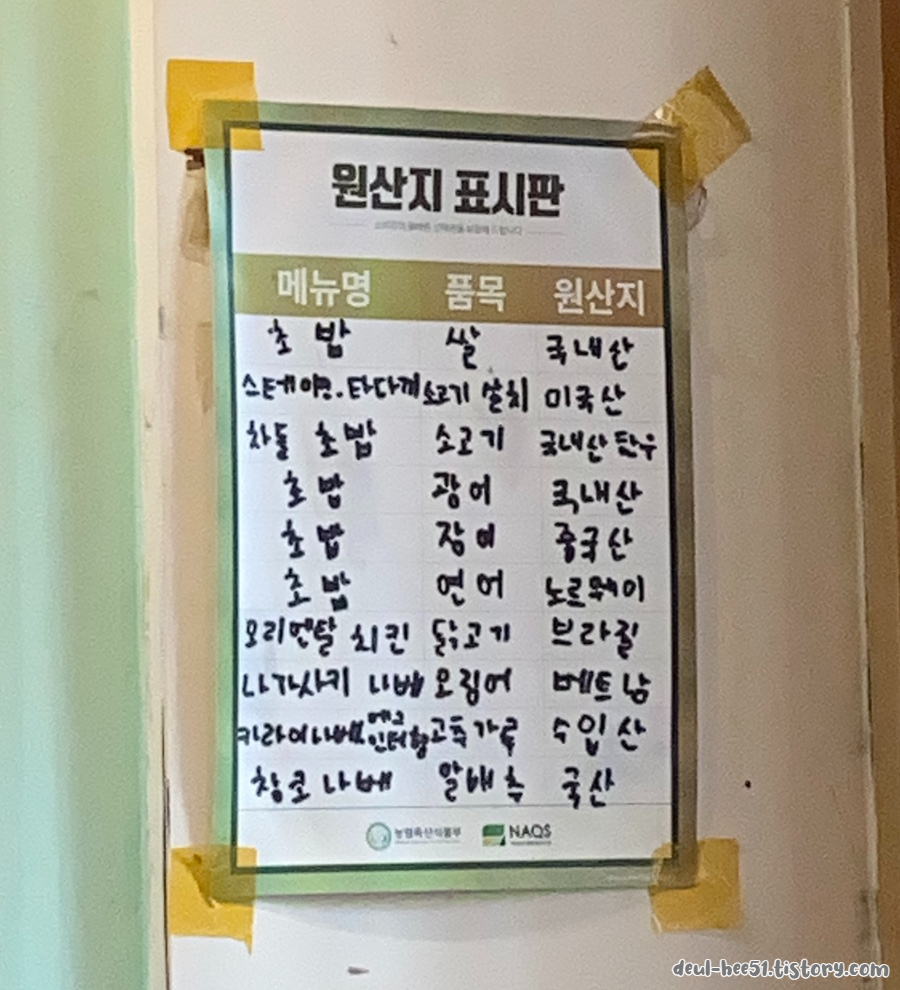 원산지 표시판
메뉴명 품목 원산지
초밥 쌀 국내산
스테이크.타다끼 소고기 살치 미국산
차돌 초밥 소고기 국내산 한우
초밥 광어 국내산
초밥 장어 중국산
초밥 연어 노르웨이
오리엔탈 치킨 닭고기 브라질
나가사키 나베 오징어 베트남
카라이나베 고춧가루 수입산
창코나베 알배추 국산
농림축산식품부 NAQS
deul-hee51.tistory.com